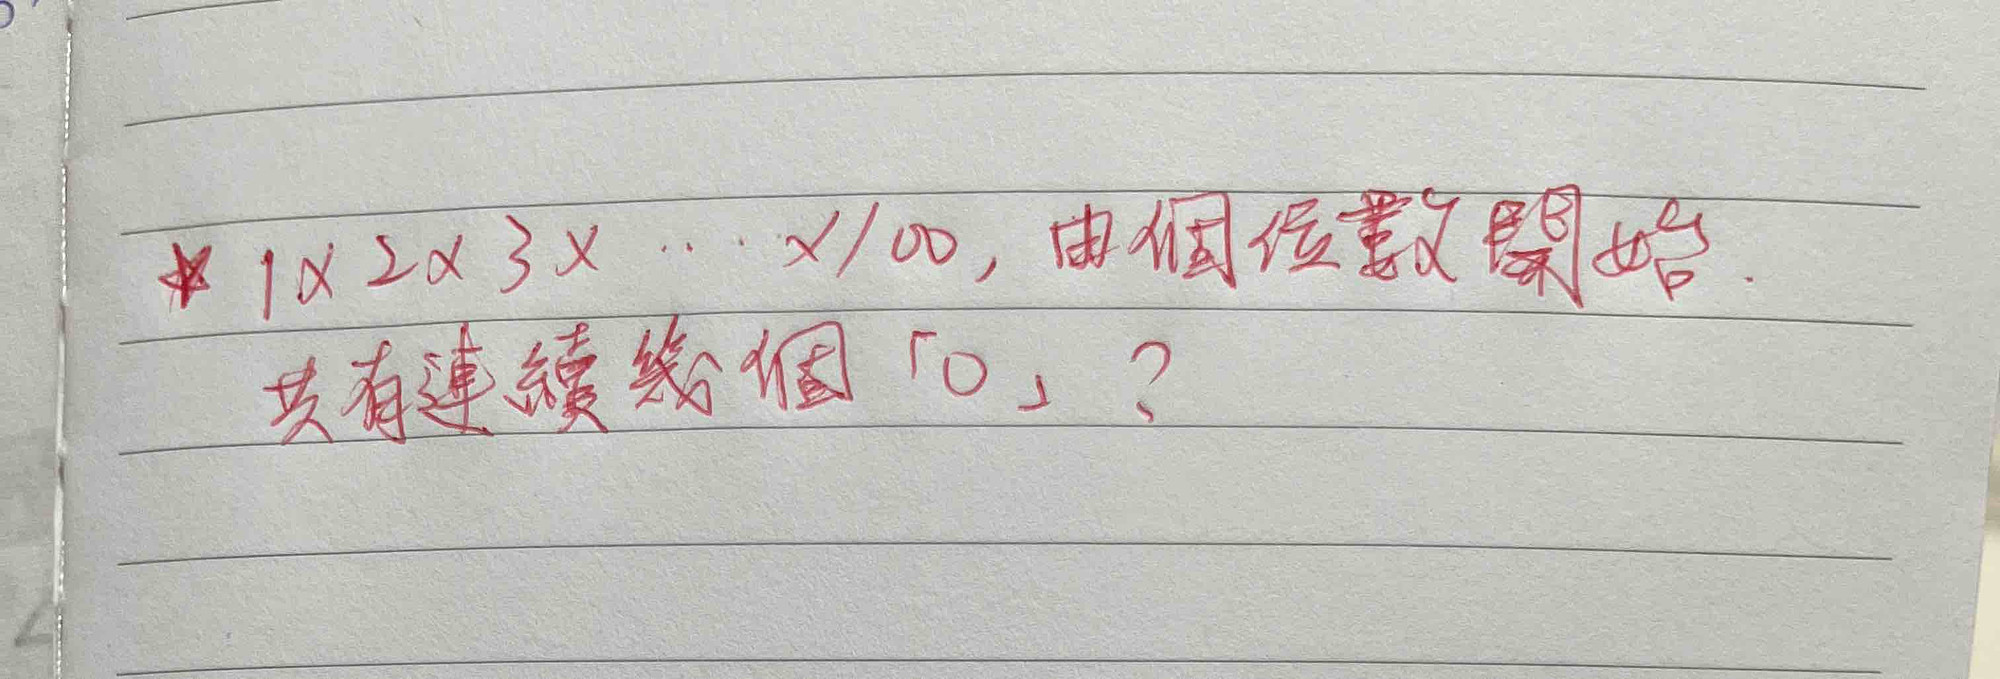 * 1×2×3× ‧‧‧‧ ×100, 由個位數開始.
共有連續幾個「0」?